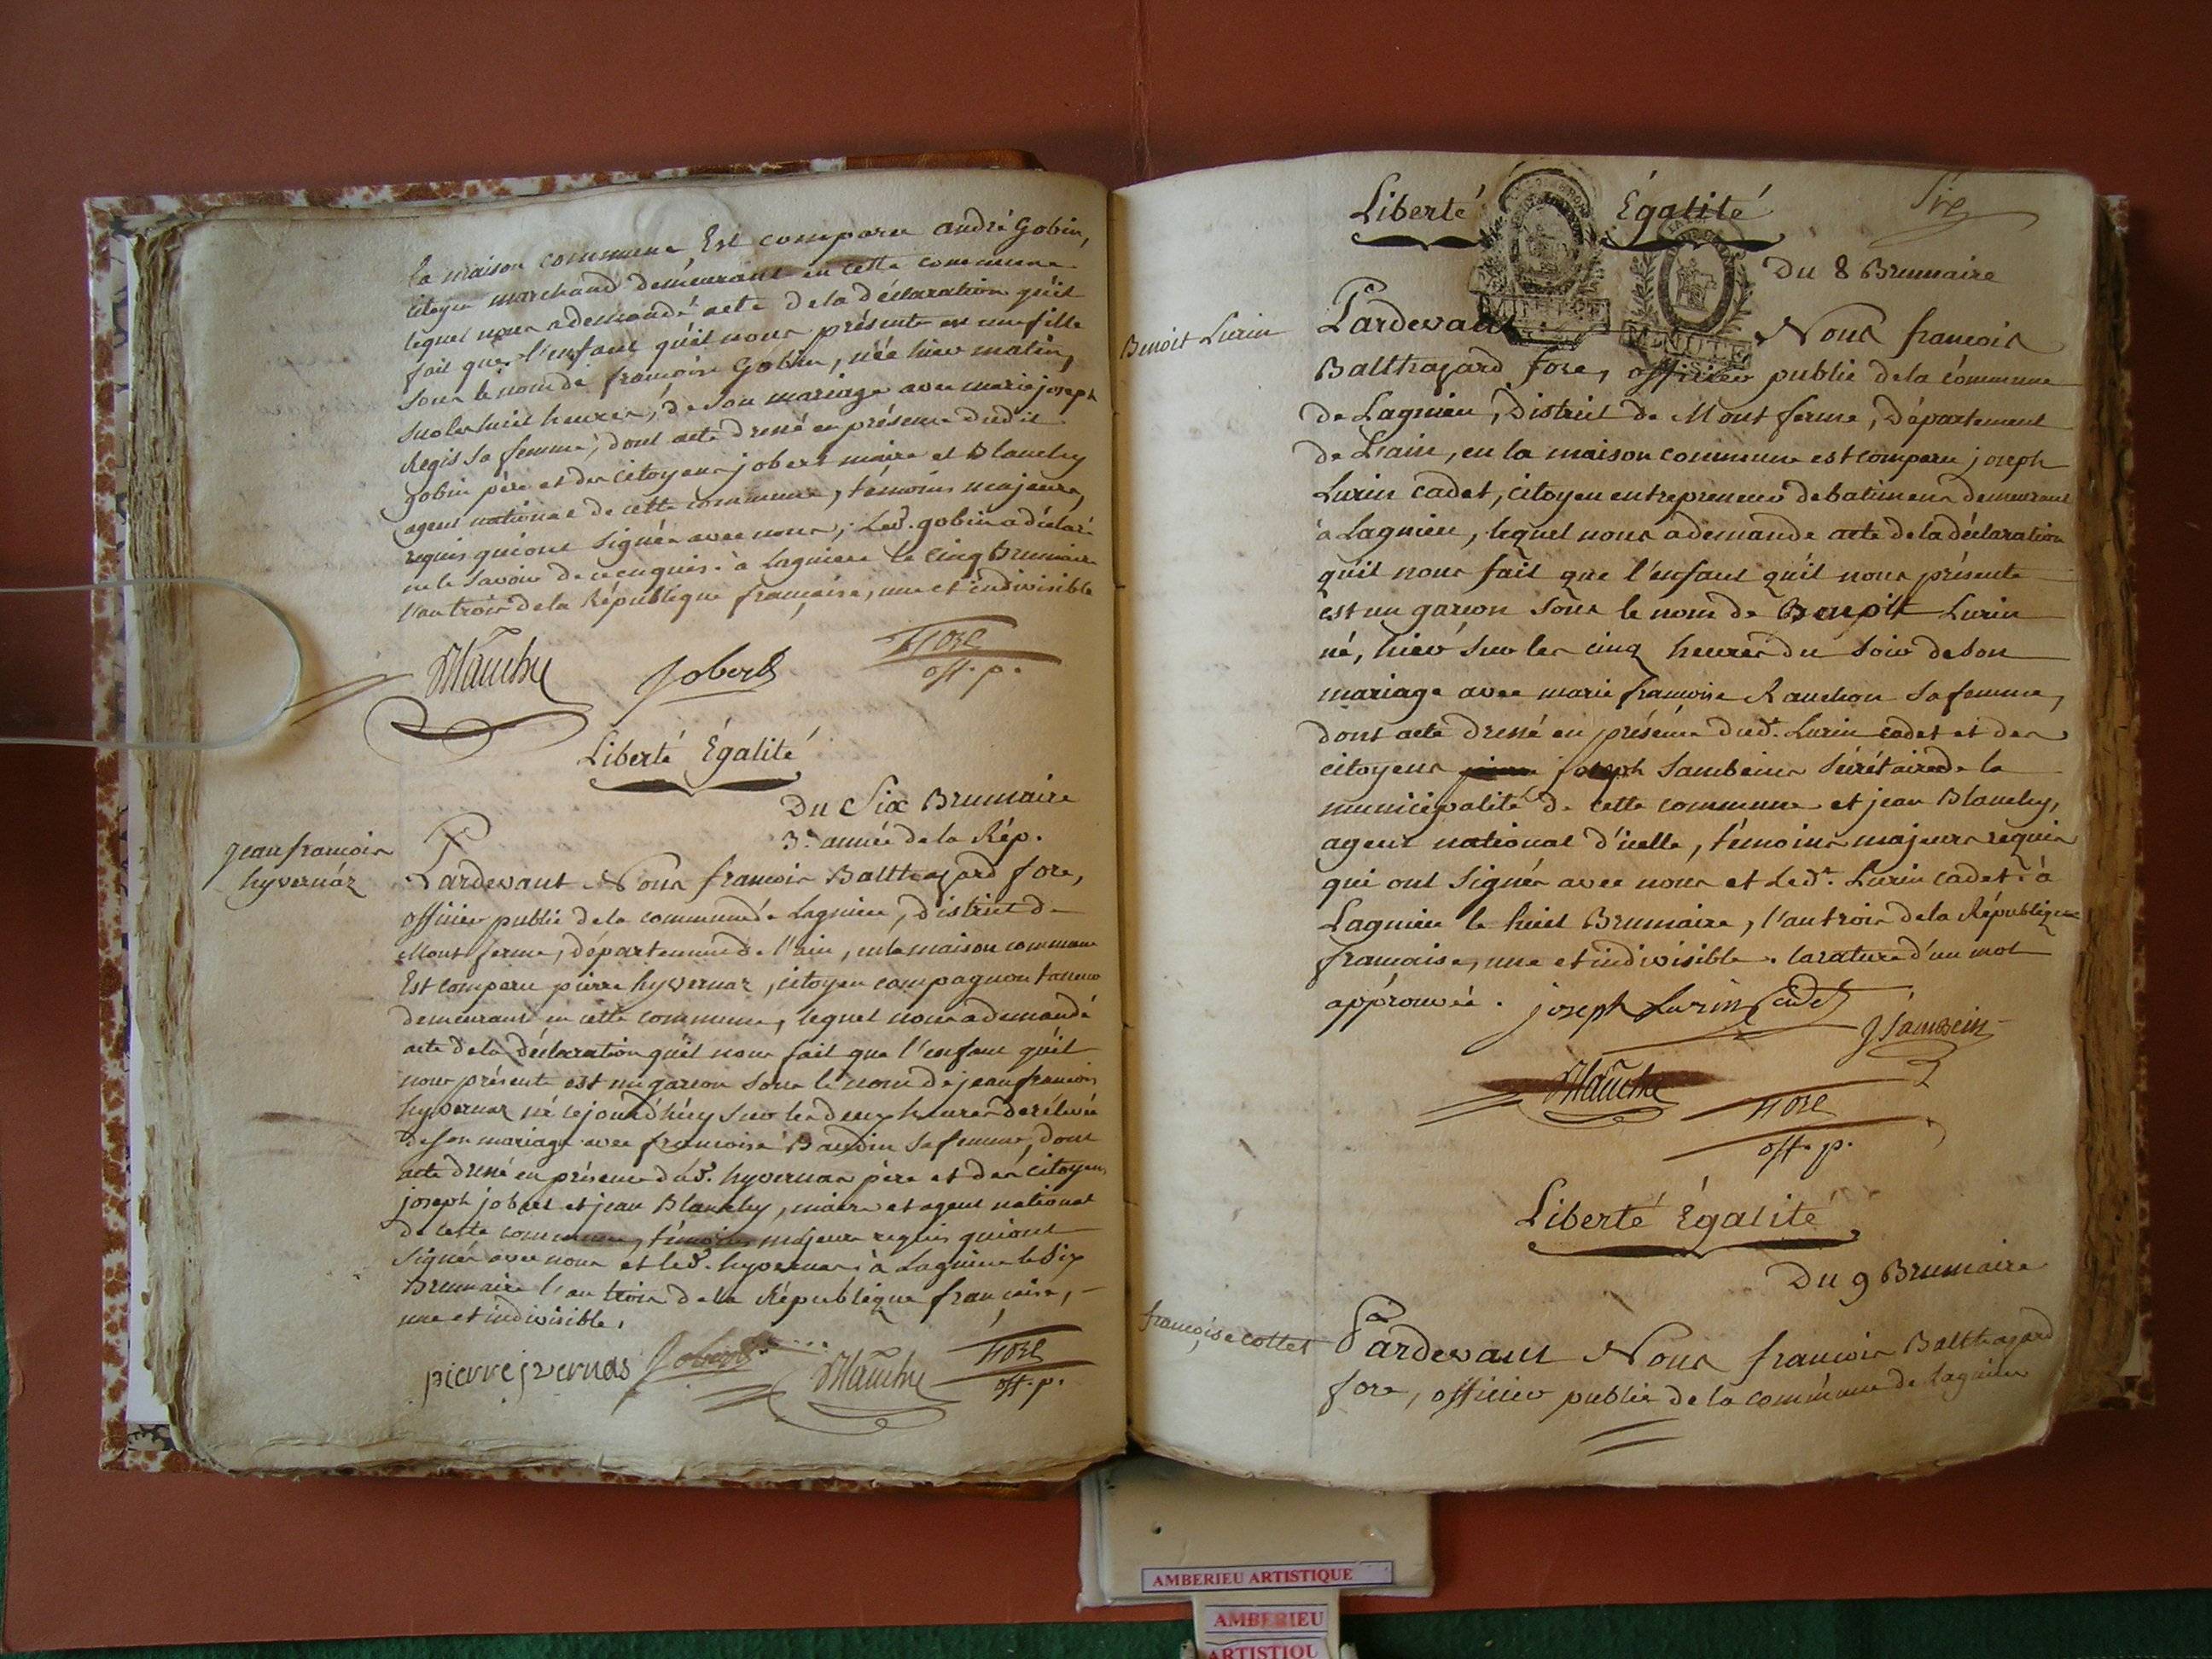 la maison commune, Est comparu andré Gobin,
citoyen marchand demeurant en cette commune
lequel nous a demandé acte de la déclaration qu'il
fait que l'enfant qu'il nous présente est une fille
sous le nom de françoise Gobin, née hier matin,
sur les huit heures, de son mariage avec marie joseph
Regis sa femme, dont acte dressé en présence dudit
gobin père et des citoyens jobert maire et Blanchy
agent national de cette commune, témoins majeurs,
requis qui ont signés avec nous, Led. gobin a déclaré
ne le savoir de ce enquis. à Lagnieu le cinq Brumaire
l'an trois de la République française, une et indivisible
Blanchy Jobert Fore
off. p.
Liberté Égalité
Du Six Brumaire
3e. année de la Rép.
jean francois
hyvernáz
Pardevant Nous francois Balthazard fore,
officier public de la commune de Lagnieu, District de
Mont ferme, département de l'ain, en la maison commune
Est comparu pierre hyvernaz, citoyen compagnon tanneur
demeurant en cette commune, lequel nous a demandé
acte de la déclaration qu'il nous fait que l'enfant qu'il
nous présente est un garcon sous le nom de jean francois
hyvernaz né cejourd'huy sur les deux heures de rélevée
de son mariage avec francoise Baudin sa femme, dont
acte dressé en présence dud. hyvernas père et des citoyens
joseph jobert et jean Blanchy, maire et agent national
de cette commune, témoins majeurs requis qui ont
signés avec nous et led. hyvernas. à Lagnieu le Six
Brumaire l'an trois de la République française,
une et indivisible.
pierre jvernas Jobert Blanchy Fore
off. p.
Liberté Égalité
Du 8 Brumaire
MINUTE
MINUTE
Benoit Lurin
Pardevant Nous francois
Balthazard fore, officier public de la commune
de Lagnieu, District de Mont ferme, Département
de L'ain, en la maison commune est comparu joseph
Lurin cadet, citoyen entrepreneur de batimens demeurant
à Lagnieu, lequel nous a demandé acte de la déclaration
qu'il nous fait que l'enfant qu'il nous présente
est un garcon sous le nom de Benoit Lurin
né, hier sur les cinq heures du soir de son
mariage avec marie francoise Ranchon sa femme,
dont acte dressé en présence dud. Lurin cadet et des
citoyens joseph Sambein Sécrétaire de la
municipalité de cette commune et jean Blanchy,
agent national d'icelle, témoins majeurs requis
qui ont signés avec nous et Led. Lurin cadet. à
Lagnieu le huit Brumaire, l'an trois de la République
française, une et indivisible. la rature d'un mot
approuvée. joseph Lurin Cadet
J Sambein
Blanchy Fore
off. p.
Liberté Égalité
Du 9 Brumaire
françoise cottet
Pardevant Nous francois Balthazard
fore, officier public de la commune de Lagnieu
AMBERIEU ARTISTIQUE
AMBERIEU
ARTISTIQU